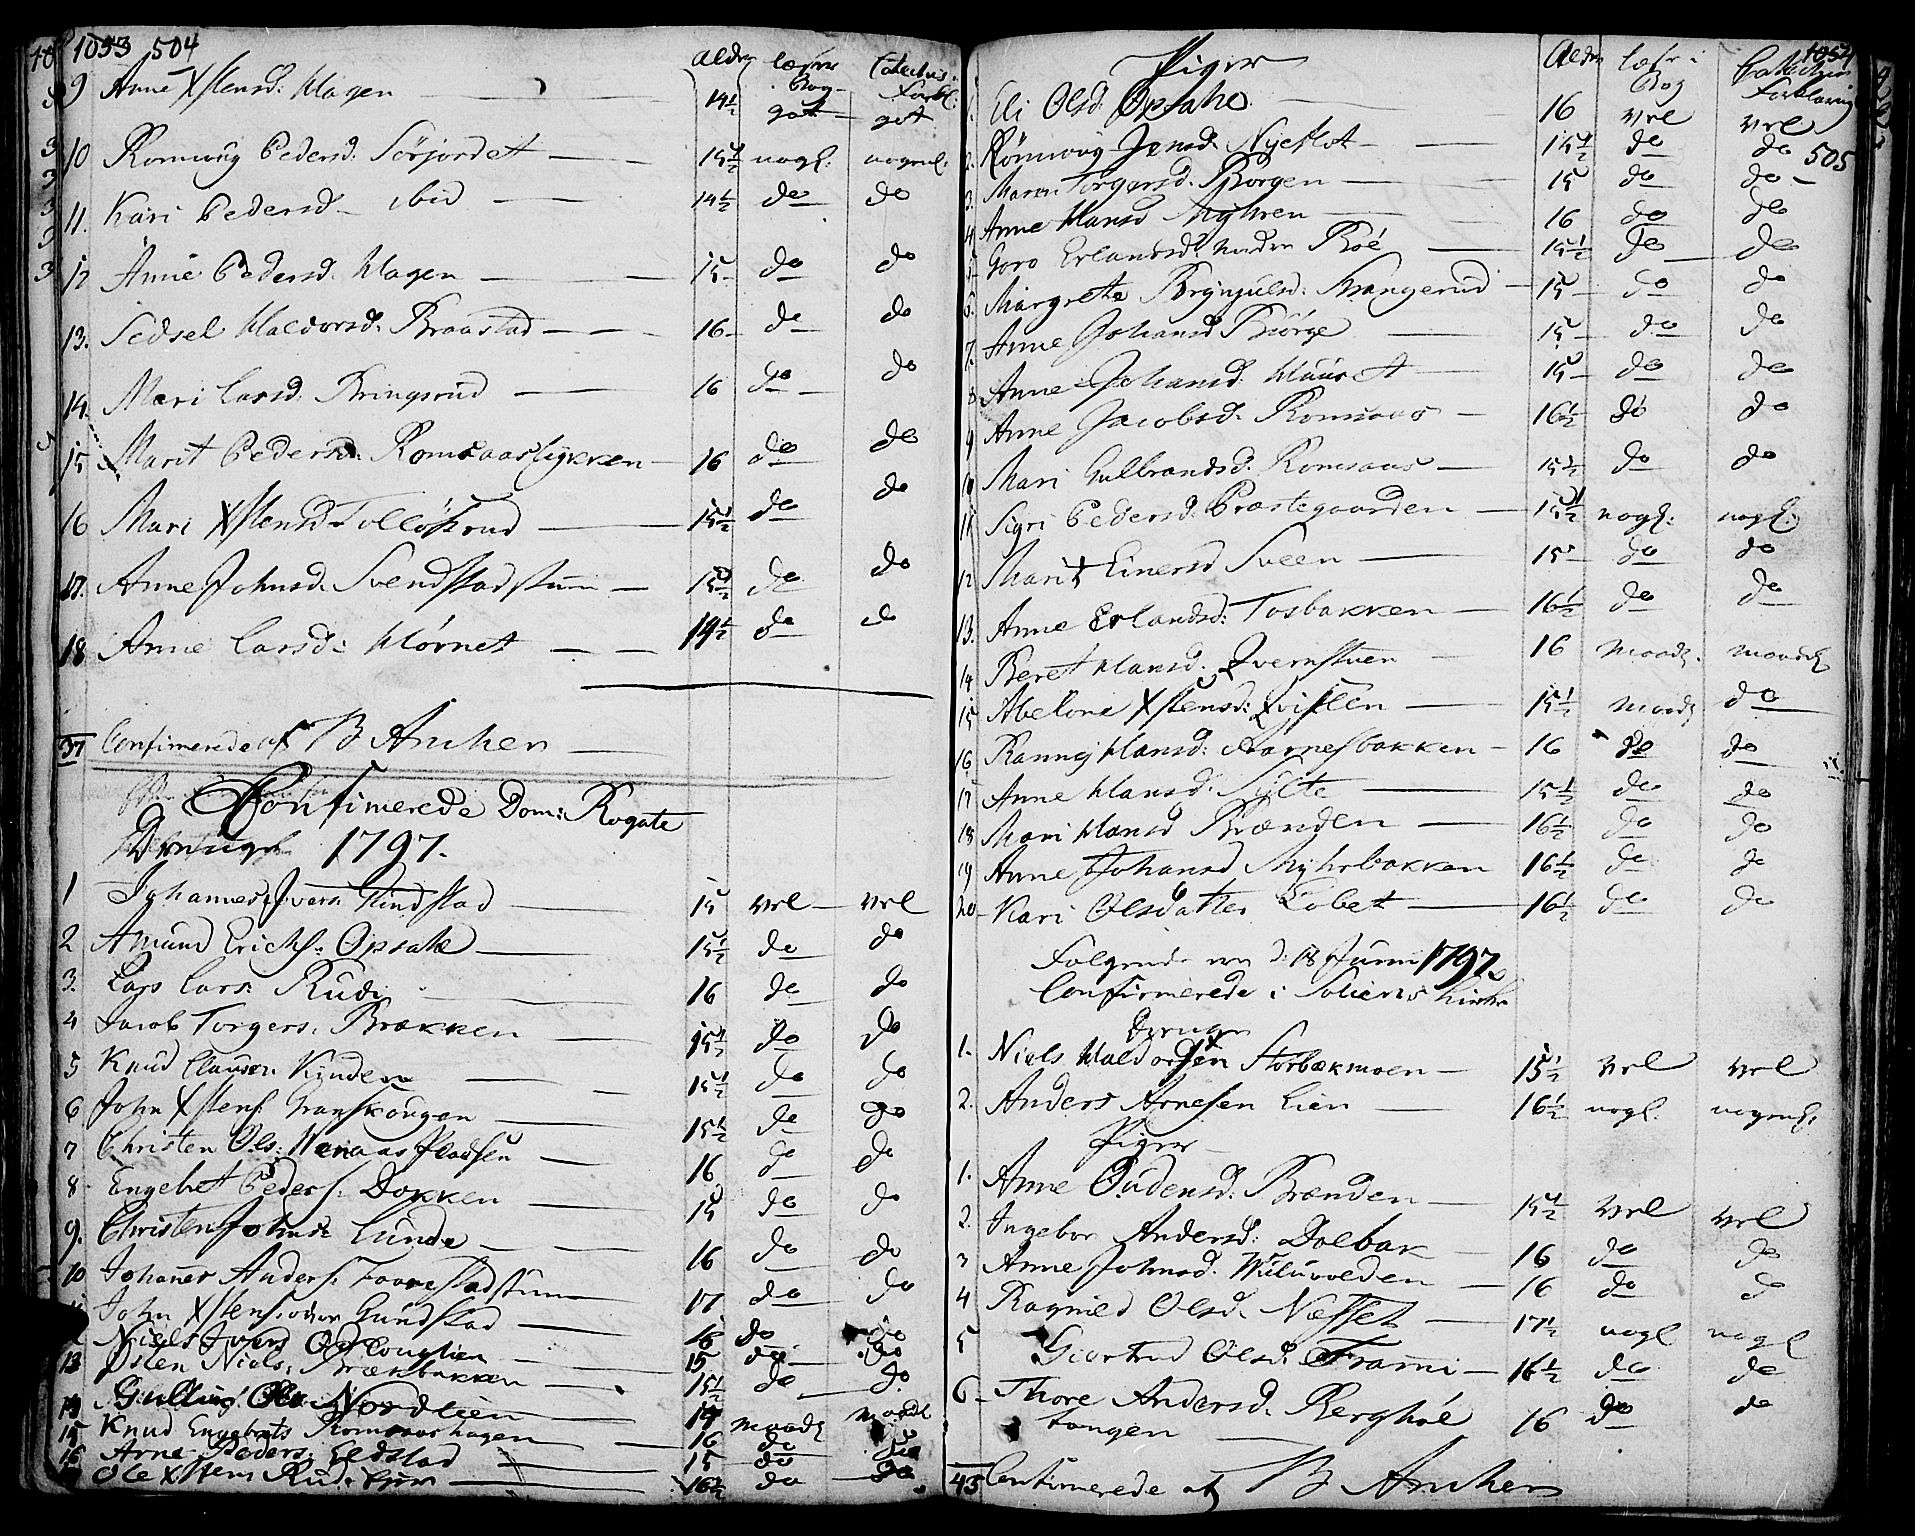 1053 504
Alder læser Bog Catechis: Forkl:
9 Anne Xstensd: Hagen 14 1/2 got got
10 Romoug Pedersd: Sörjordet 15 1/2 nogl: nogenl:
11. Kari Pedersd ibid 14 1/2 do do
12 Anne Pedersd: Hagen 15 do do
13. Sidsel Haldorsd: Braastad 16 do do
14. Mari Larsd. Bringsrud 16 do do
15 Marit Pedersd: Romsaaslykken 16 do do
16 Mari Xstensd Tollöfsrud 15 1/2 do do
17. Anne Johnsd. Svendstadstuen 15 1/2 do do
18 Anne Larsd: Hörnet 14 1/2 do do
37 Confimerede af B Ancher
Confimerede Dom: Rogate
Drenge 1797.
1 Johannes Ivers: Kindstad 15 vel vel
2 Amund Erichs: Opsahl 15 1/2 do do
3. Lars Lars: Rudi 16 do do
4 Jacob Torgers: Brækken 15 1/2 do do
5 Knud Clausen Kinden 15 1/2 do do
6 John Xstens: Granskougen 15 1/2 do do
7 Christen Ols: pladsen 16 do do
8 Engebret Peders: Dokken 15 do do
9. Christen Johns: Lunde 16 do do
10 Johannes Anders: stuen 17 do do
John Xstens: Gundstad 16 do do
Niels Ivers 15 do do
13 Østen Niels: Brækbakken 15 1/2 do do
14 Gulling Ols: Nordlien 14 maadl maadl
15 Knud Engebrets Romsaashagen 16 do do
16 Arne Peders: Eldstad 15 do do
Ole Xstens Rud 16 1/2 do do
1054
505
Piger Alder læser i Bog Catechis Forklaring
1. Eli Olsd: Opsahl 16 vel vel
2. Rönnoug Jensd. Nyeslot 15 1/2 do do
3. Maren Torgersd. Borgen 15 do do
4 Anne Hansd Myhren 16 do do
5 Goro Erlandsd: neder Roe 15 1/2 do do
6. Margrethe Brynjulsd: Strangerud 15 do do
7. Anne Johansd Biörge 15 do do
8 Anne Johansd. Hauret 15 do do
9 Anne Jacobsd. Romsaas 16 1/2 do do
10 Mari Gulbrandsd: Romsaas 15 1/2 do do
11 Sigri Pedersd. Præstegaarden 15 1/2 nogl: nogl:
12 Marit Einersd Sveen 15 do do
13. Anne Erlandsd: Tosbakken 16 1/2 do do
14 Beret Hansd. Qvernstuen 16 maadl. maadel
15 Abelone Xstensd: Qvislen 15 1/2 maadl do
16 Rannej Hansd: Aarnesbakken 16 do do
17 Anne Hansd: Sylte 15 1/2 do do
18 Mari Hansd Brænden 16 1/2 do do
19 Anne Johansd Myhrbakken 16 1/2 do do
20 Kari Olsdatter Lobet 16 1/2 do do
Følgende ere d: 18 Junii 1797
Confirmerede i Soliens Kirke
Drenge
1. Niels Haldorsen Storbækmoen 15 1/2 vel vel
2. Anders Arnesen Lien 16 1/2 nogl. nogenl:
Piger
1. Anne Oudensd: Brænden 15 1/2 vel vel
2. Ingebor Andersd: Dalbak 16 do do
3 Anne Johnsd: Huluvolden 16 do do
4 Ragnild Olsd. Næsset 17 1/2 nogl nogl
5 Giertrud Olsd: Frami 16 1/2 do do
6 Thore Andersd. Berghöe tangen 16 do do
45 Confimerede af B Ancher